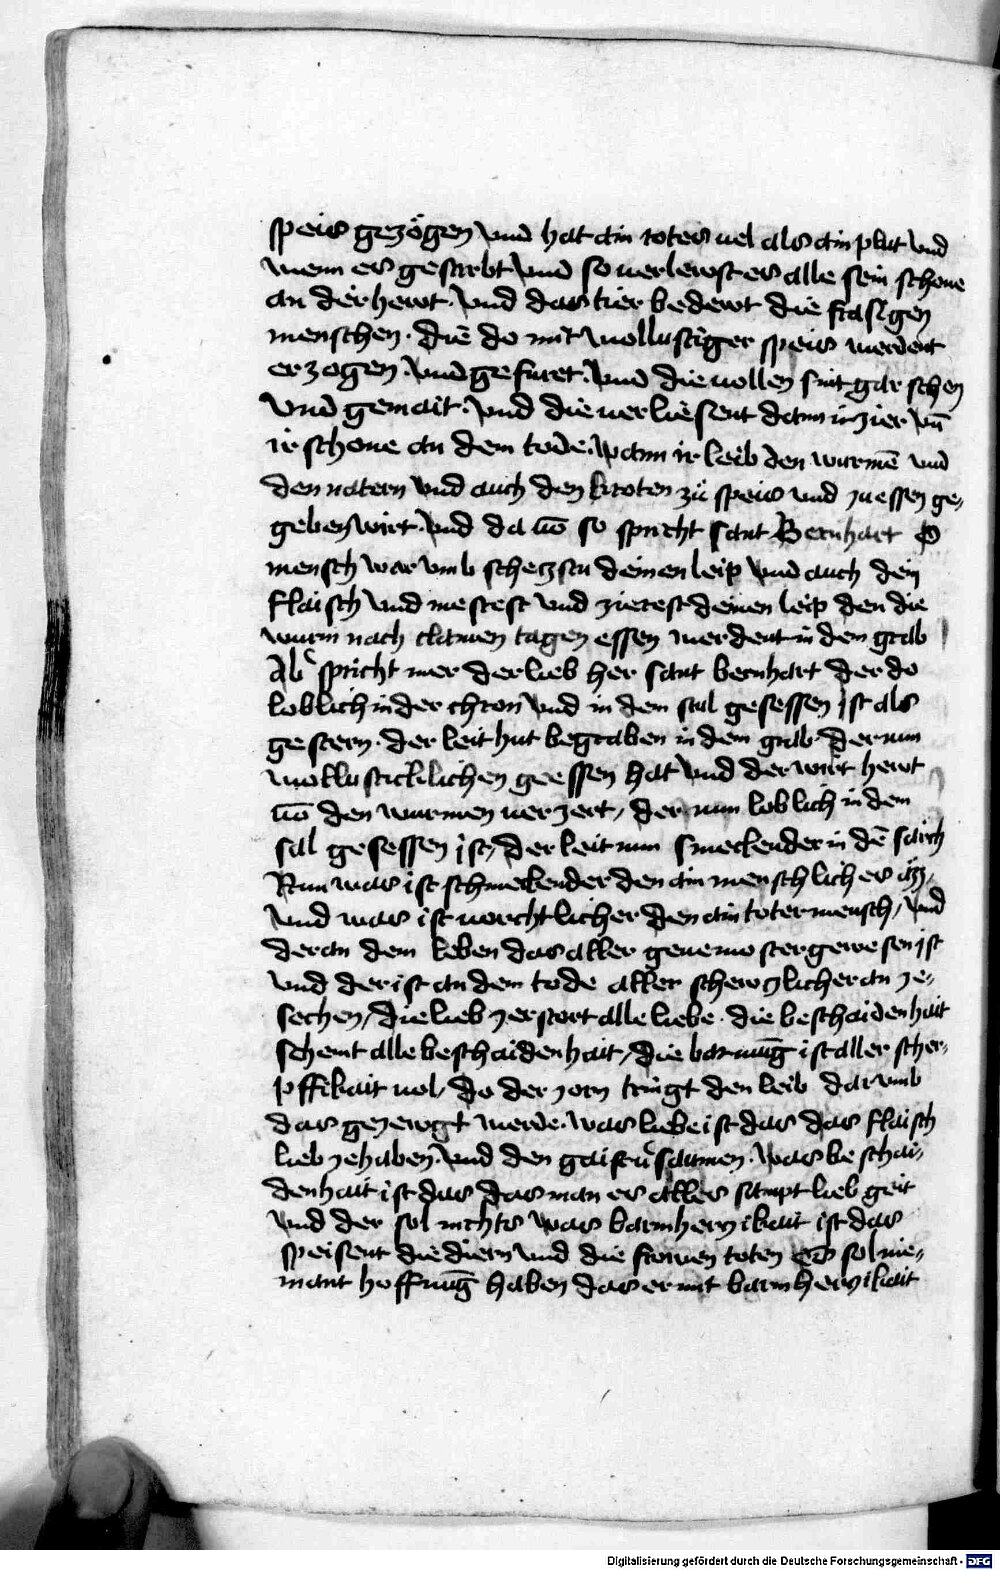 speis gezögen vnd hat ain rotes uel als ain plut vnd
wenn es gestirbt vnd so uerlewst es alle sein schone
an der hewt. vnd das tier bedewt die frasigen
menschen. die do mit wollustiger speis werdent
erzogen vnd gefuret. vnd die uollen sint gar schen
vnd gemait. vnd die uerliesent dann ir zier vn̄
ir schone an dem tode. wann ir leib den wurmē vnd
den natern vnd auch den kroten zů speis vnd zu essen ge,
geben wirt. vnd da uō so spricht sant Bernhart O
mensch war vmb scheczstu deinen leip vnd auch dein
flaisch vnd mestest vnd zierest deinen leip den die
wurm nach clainen tagen essen werdent in dem grab
Ab͛ spricht mer der lieb her sant bernhart der do
loblich in der chron vnd in dem stul gesessen ist als
gestern. der leit hut begraben in dem grab. der nun
wollusticklichen geessen hat vnd der wirt hewt
uō den wurmen uerzert, der nun loblich in dem
sal gesessen ist, der leit nun smeckender in dē sarch
Nun was ist schmeckender den ain menschliches
vnd was ist uorchtlicher den ain toter mensch, vnd
der an dem leben das aller genemoster gewesen ist
vnd der ist an dem tode aller schewczlicher an ze,
sechen, die lieb zerstort alle liebe. die beschaidenhait
schent alle beschaidenhait, die barmūg ist aller scher,
pffikait uol, do der zorn tringt den leib darvmb
das gezewgt werde. was liebe ist das das flaisch
lieb zehaben. vnd den gaist u͛saumen. was beschai,
denhait ist das das man es alles sampt lieb geit
vnd der sol nichts was barmherczikait ist das
speisent die diern vnd die frawen toten es sol nie,
mant hoffnūg haben das er mit barmherczikait
Digitalisierung gefördert durch die Deutsche Forschungsgemeinschaft - DFG